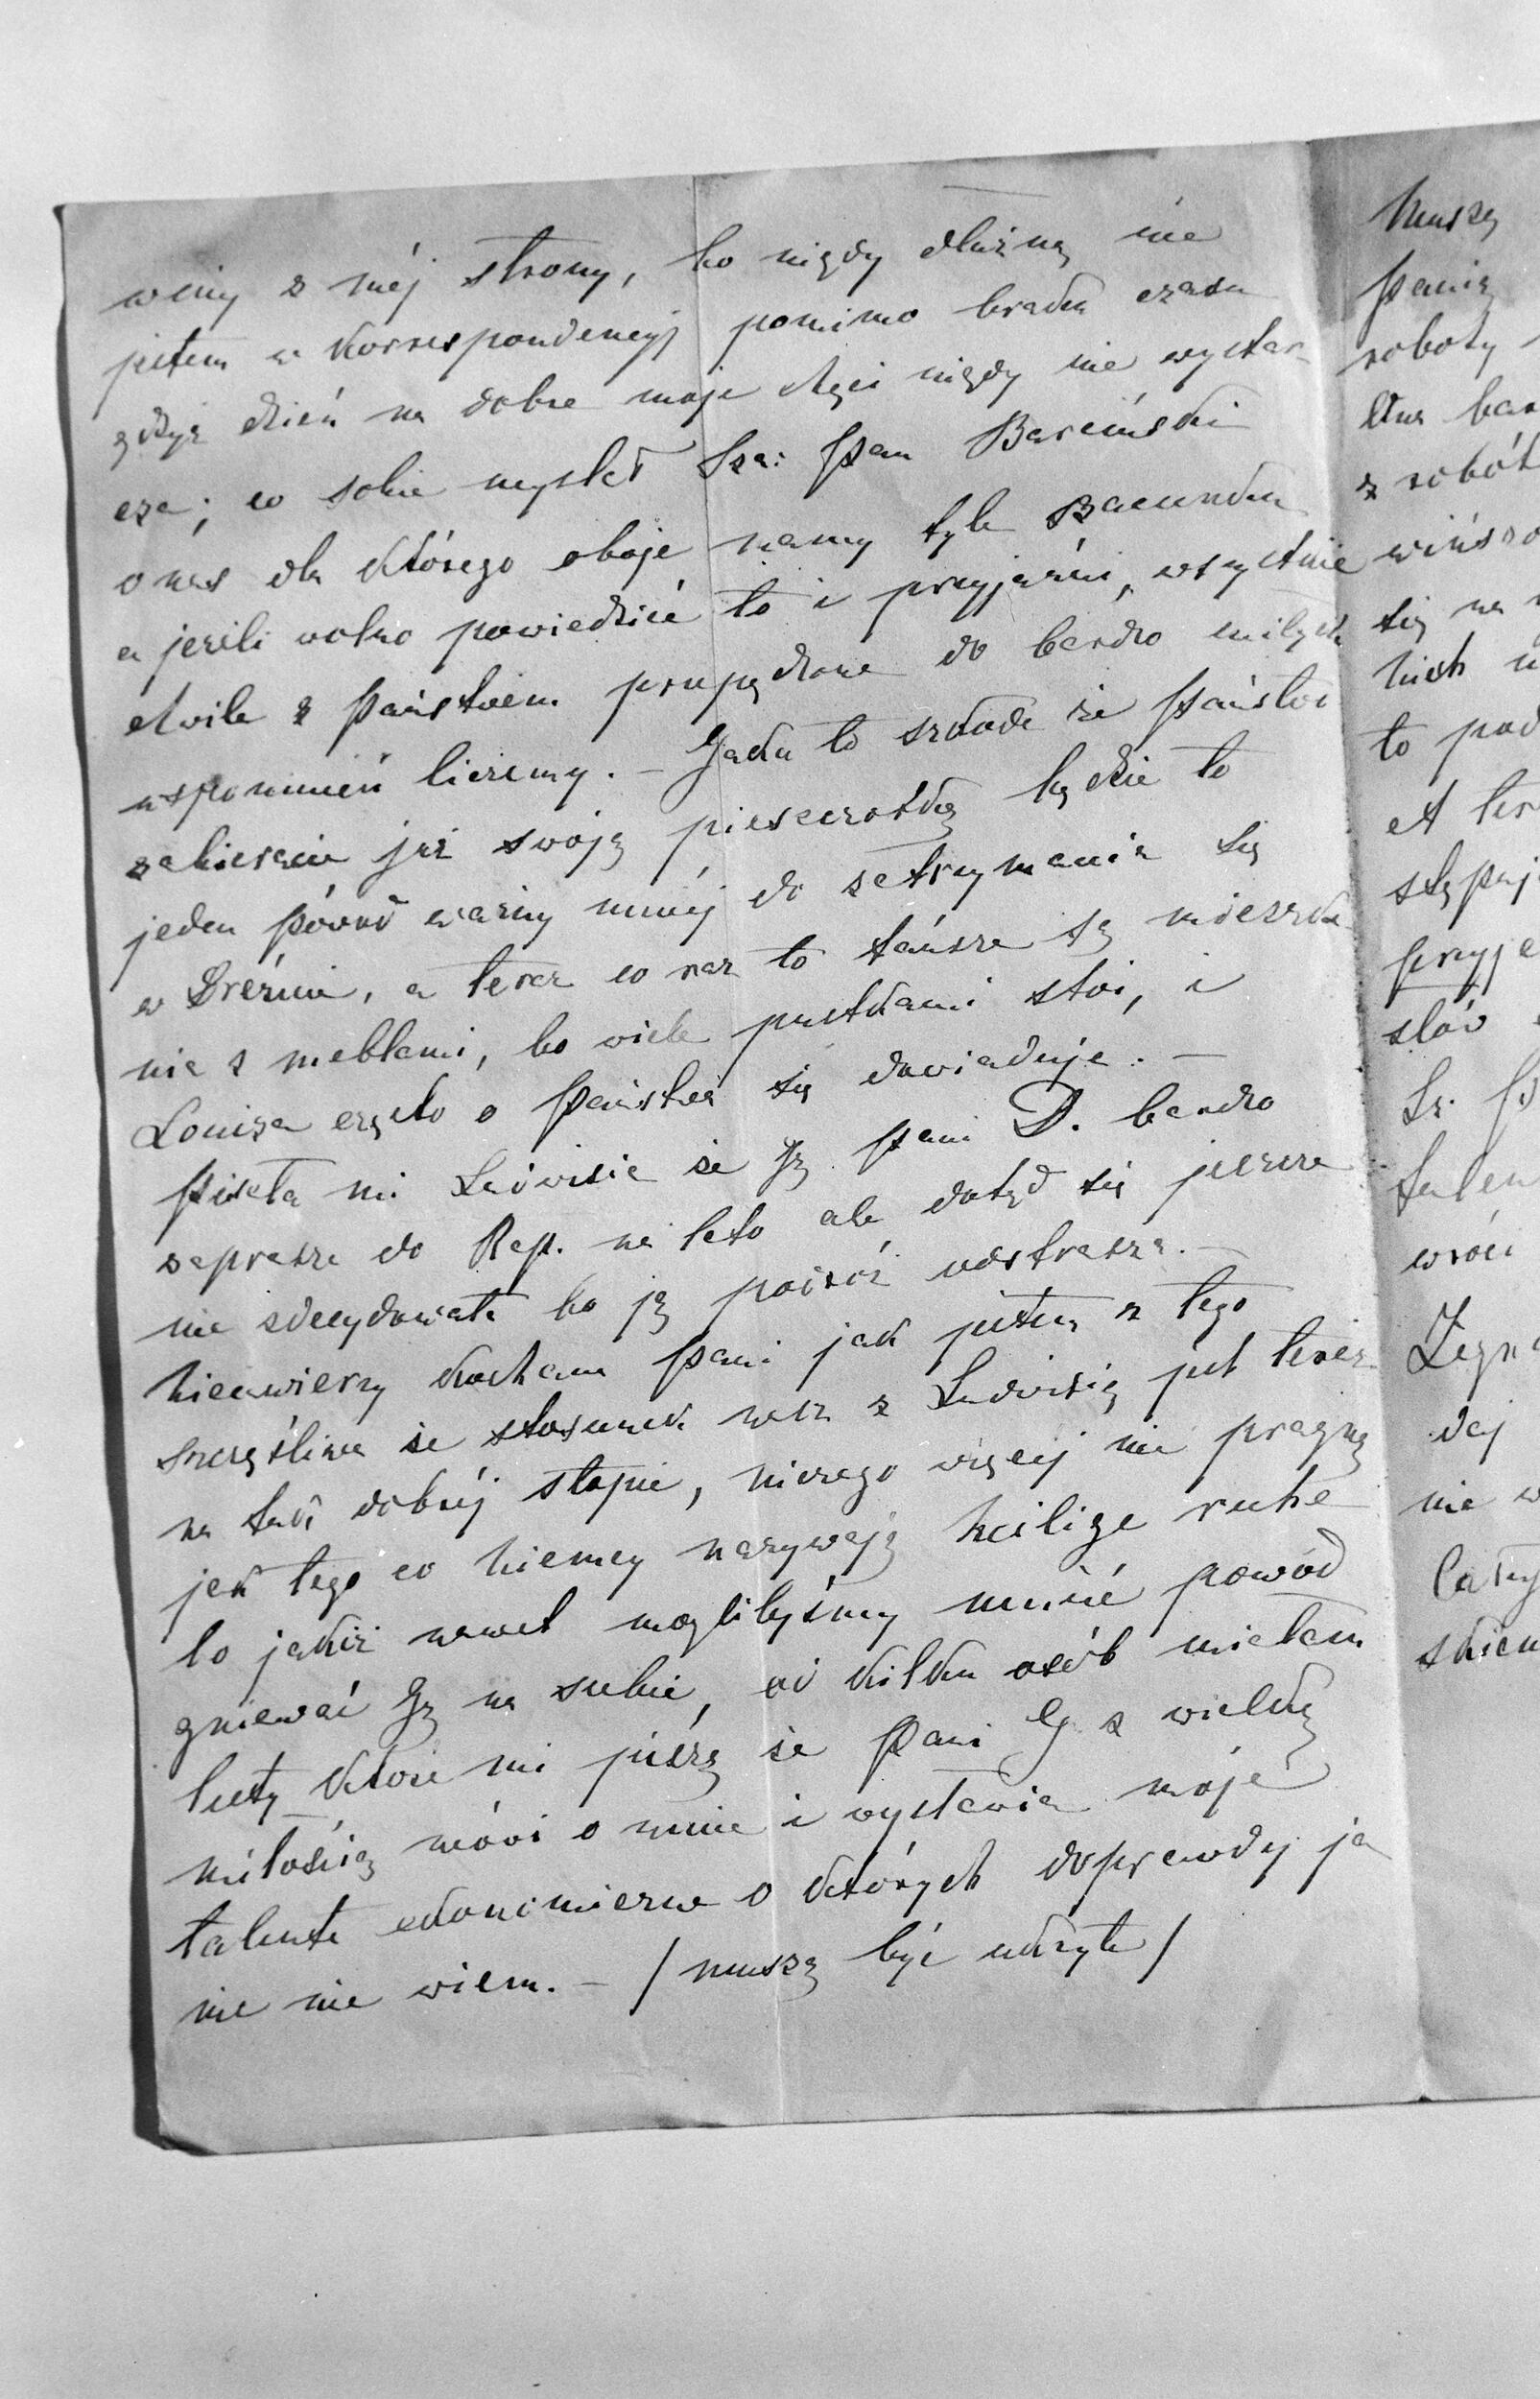 winy z méj strony, bo nigdy dłużną nie
jestem w korrespondencyj pomimo braku czasu
gdyż dzień na dobre moje chęci nigdy nie wystar-
cza; co sobie myślał Sza: Pan Barciński
o nas dla którego oboje mamy tyle szacunku
a jeżeli wolno powiedzieć to i przyjaźni, wszystkie
chwile z Państwem przepędzone do bardzo miłych
wspomnień liczemy. – Jaka to szkoda że Państwo
zabieracie już swoją pieszczotkę będzie to
jeden powód ważny mniéj do zatrzymania się
w Dreźnie, a teraz co raz to tańsze są mieszka-
nia z meblami, bo wiele pustkami stoi, i
Louiza często o Państwa się dowiaduje. –
Pisała mi Ludwisia że Ją Pani D. bardzo
zaprasza do Rap. na lato ale dotąd się jeszcze
nie zdecydowała bo ją podróż odstrasza. –
Nieuwierzy Kochana Pani jak jestem z tego
szczęśliwa że stosunek nasz z Ludwisią jest teraz
na tak dobréj stopie, niczego więcéj nie pragnę
jak tego co Niemcy nazywają heilige ruhe
bo jakiż nawet moglibyśmy mieć powód
gniewać się na siebie, od kilku osób miałam
listy które mi piszą że Pani G z wielką
miłością mówi o mnie i wystawia moje
talenta ekonomiczne o których doprawdy ja
nic nie wiem. – / muszą być ukryte /
Muszę
Panią
roboty
bar
z robót
winszo
się na
nich
to pod
A ter
stępuj
przyje
słów
Sz. P
talen
wróci
Żegna
daj
nie w
Cały